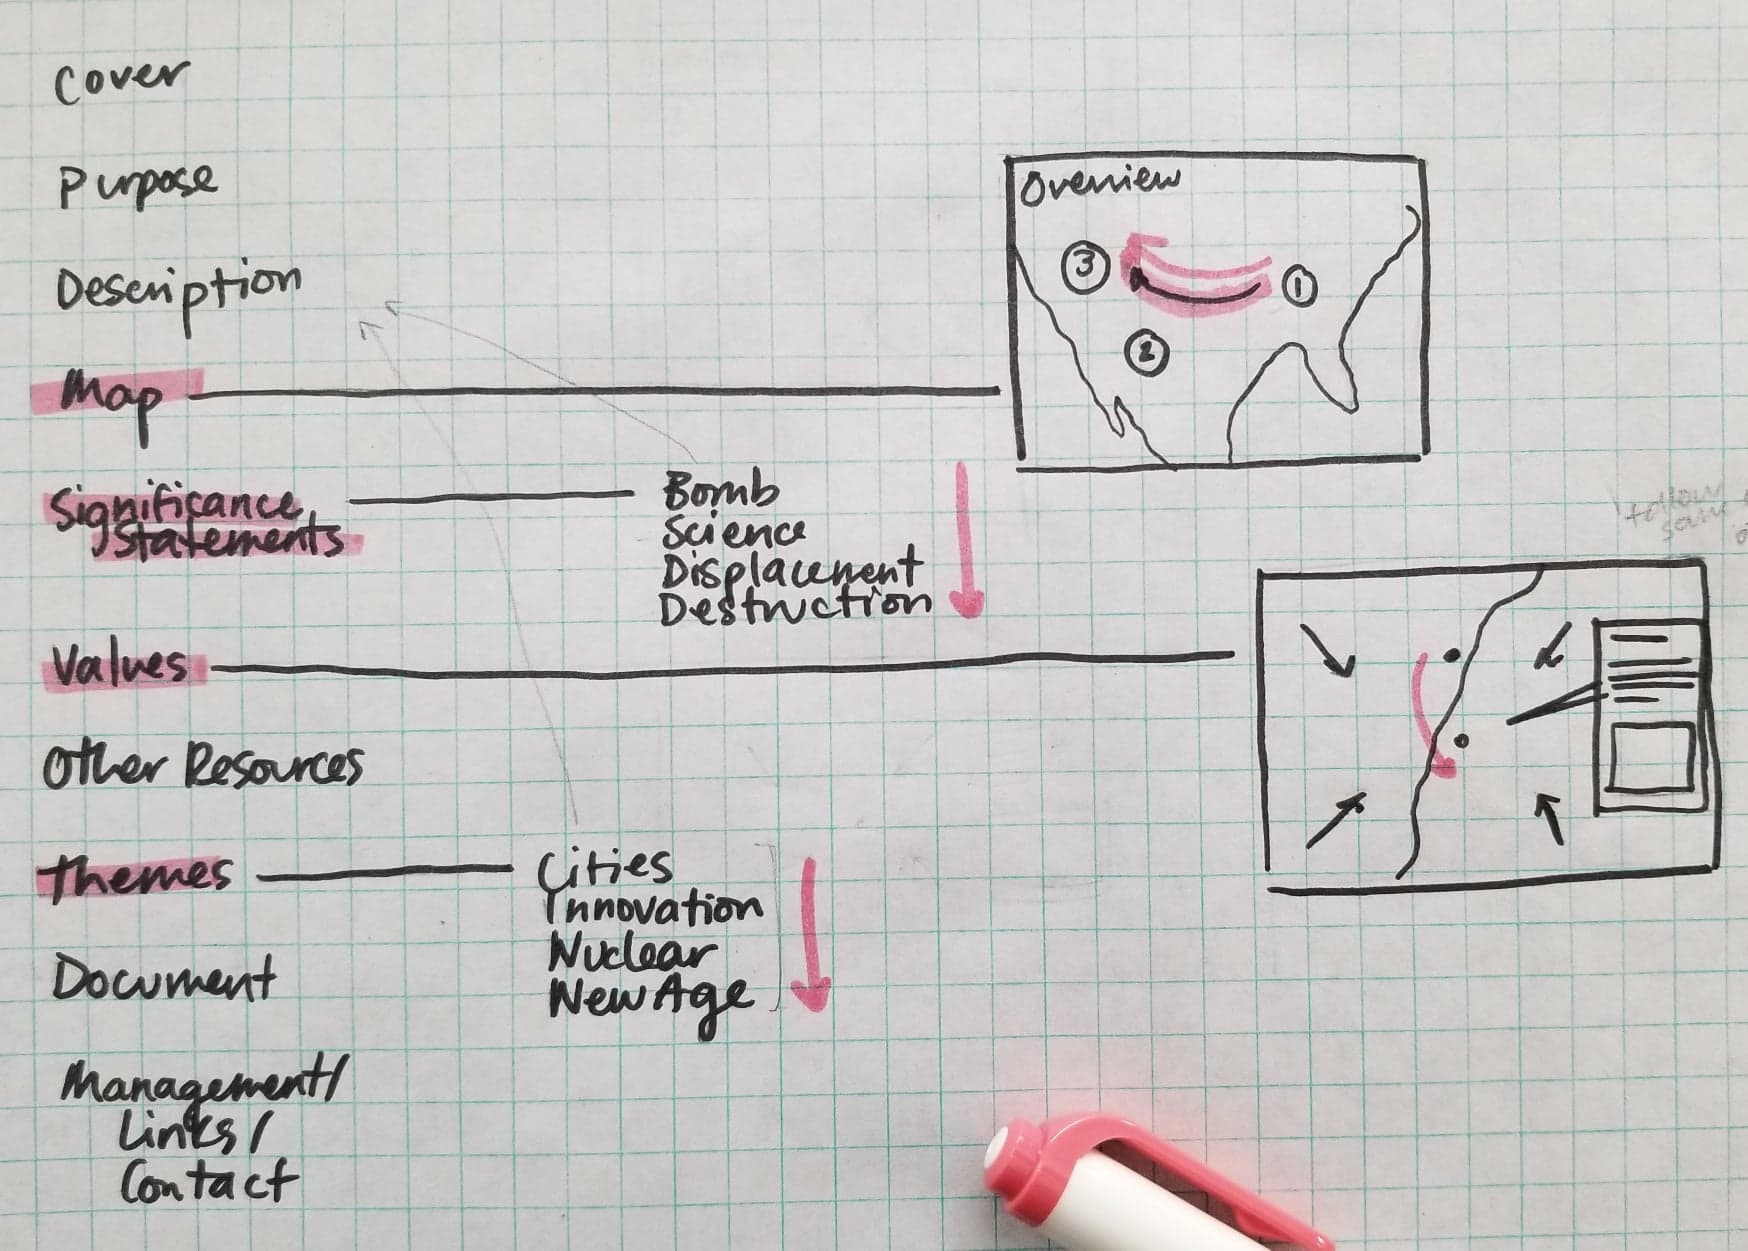 Cover
Purpose
Overview
Description
3
1
2
Map
Significance
Statements
Bomb
Science
Displacement
Destruction
follow
Values
Other Resources
Themes
Cities
Innovation
Nuclear
New Age
Document
Management/
Links/
Contact